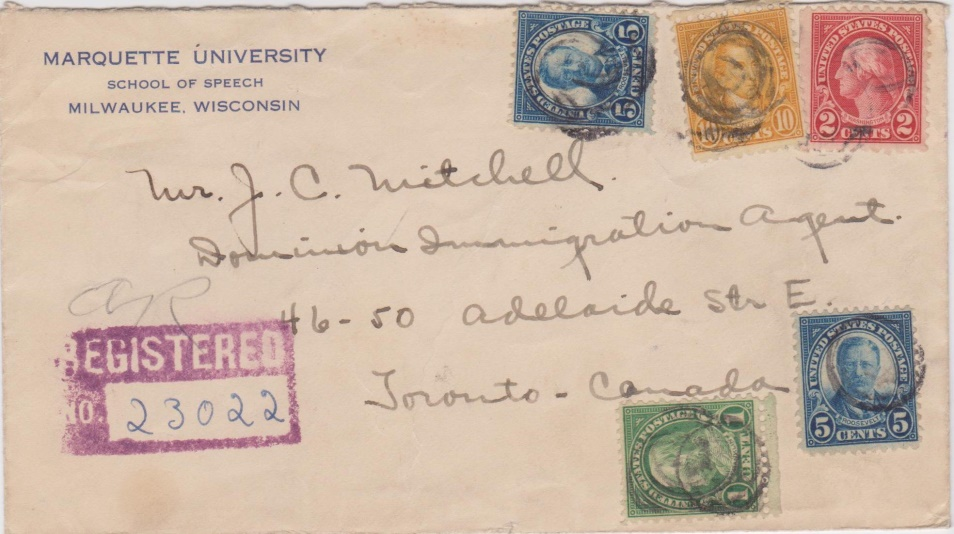 MARQUETTE UNIVERSITY
SCHOOL OF SPEECH
MILWAUKEE, WISCONSIN
UNITED STATES POSTAGE
5 CENTS 5
10 CENTS 10
UNITED STATES POSTAGE
2 CENTS 2
Mr. J. C. Mitchell.
Dominion Immigration Agent.
46-50 Adelaide Str E.
Toronto - Canada
REGISTERED
NO. 23022
UNITED STATES POSTAGE
ROOSEVELT
5 CENTS 5
UNITED STATES POSTAGE
1 CENT 1